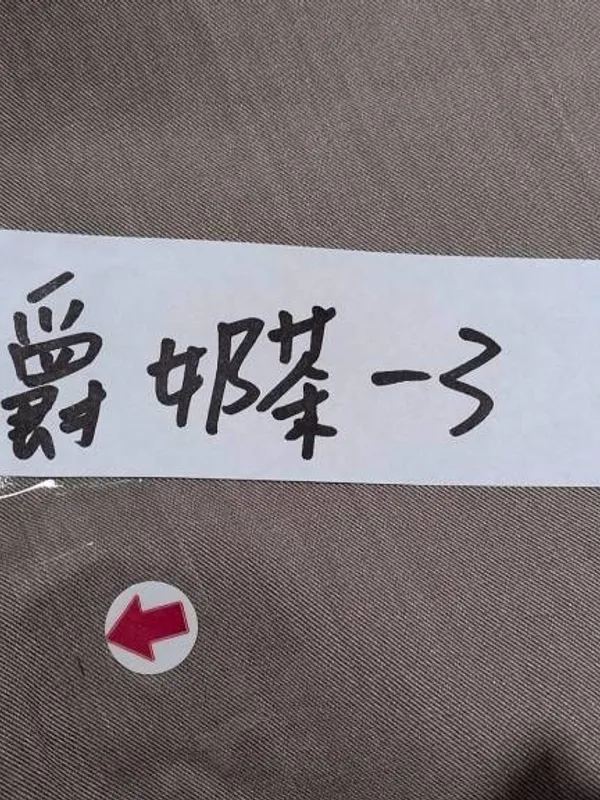 爵奶茶-3